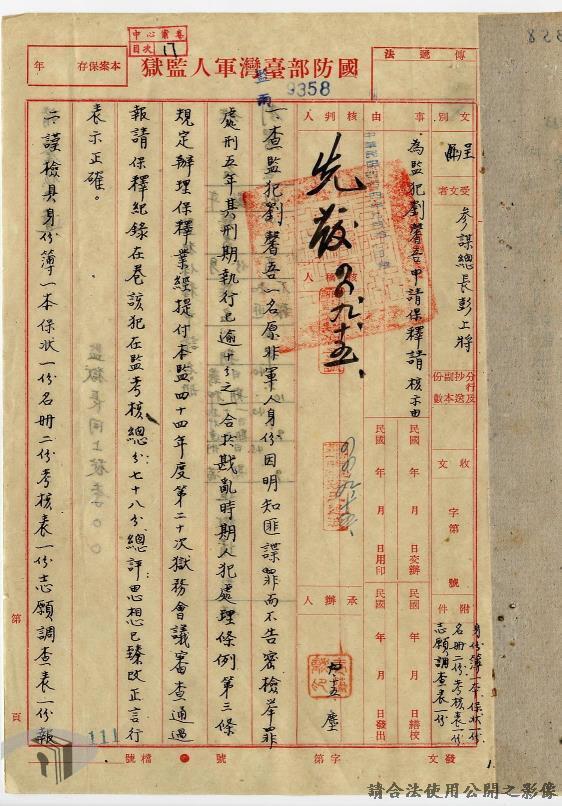 中心密卷
目次 17
本案保存 年
國防部臺灣軍人監獄
傳遞法
9358
文別 呈
受文者 參謀總長彭上將
事由 為監犯劉馨吾申請保釋請核示由
核判人
先發 四、九、十五、
核稿人
承辦人
九、十五
分行及抄送副本份數
收文 字第 號
民國 年 月 日交辦
民國 年 月 日用印
民國 年 月 日繕校
民國 年 月 日發出
附件 身份簿一本保狀一份
名冊二份考核表一份
志願調查表一份
一、查監犯劉馨吾一名原非軍人身份因明知匪諜罪而不告密檢举罪
處刑五年其刑期執行已逾十分之一合於戡亂時期人犯處理條例第三條
規定辦理保釋業經提付本監四十四年度第二十次獄務會議審查通過
報請保釋紀錄在卷該犯在監考核總分七十八分總評思想已臻改正言行
表示正確。
二、謹檢具身份簿一本保狀一份名冊二份考核表一份志願調查表一份報
111
第 頁
發文 字第 號
檔號
請合法使用公開之影像